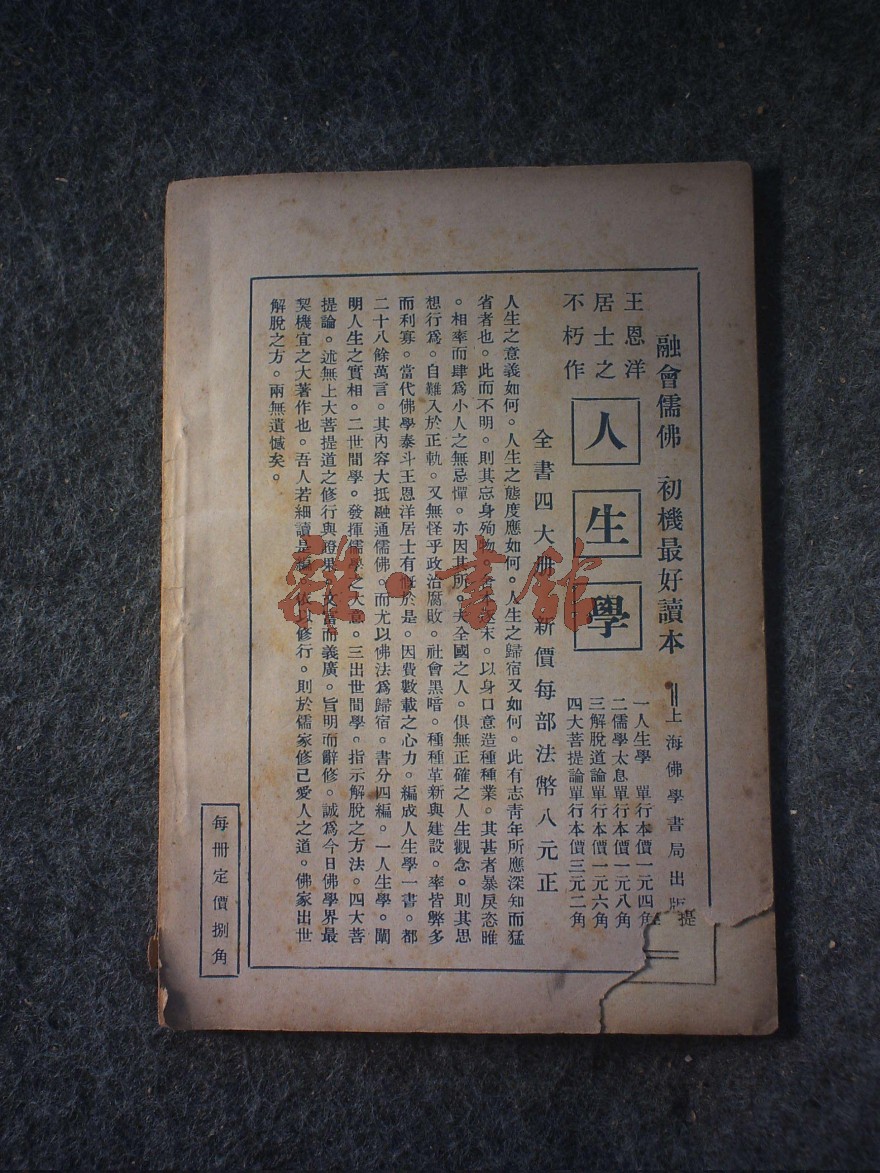 融會儒佛 初機最好讀本 ＝上海佛學書局出版
王恩洋
居士之
不朽作
人生學
一人生學 單行本價一元四角
二儒學太息單行本價一元八角
三解脫道論單行本價一元六角
四大菩提論單行本價三元二角
全書四大冊 新價每部法幣八元正
人生之意義如何。人生之態度應如何。人生之歸宿又如何。此有志靑年所應深知而猛
省者也。此而不明。則其忘身殉物 末。以身口意造種種業。其甚者暴戾恣睢
。相率而肆爲小人之無忌憚。亦因其所。夫全國之人。俱無正確之人生觀念。則其思
想行爲。自難入於正軌。又無怪乎政治腐敗。社會黑暗。種種革新與建設。率皆弊多
而利寡。當代佛學泰斗王恩洋居士有慨於是。因費數載之心力。編成人生學一書。都
二十八餘萬言。其內容大抵融通儒佛。而尤以佛法爲歸宿。書分四編。一人生學。闡
明人生之實相。二世間學。發揮儒學之大意。三出世間學。指示解脫之方法。四大菩
提論。述無上大菩提道之修行與證果。文富而義廣。旨明而辭修。誠爲今日佛學界最
契機宜之大著作也。吾人若細讀是編。依以修行。則於儒家修己愛人之道。佛家出世
解脫之方。兩無遺憾矣。
每冊定價捌角
提
雜·書館